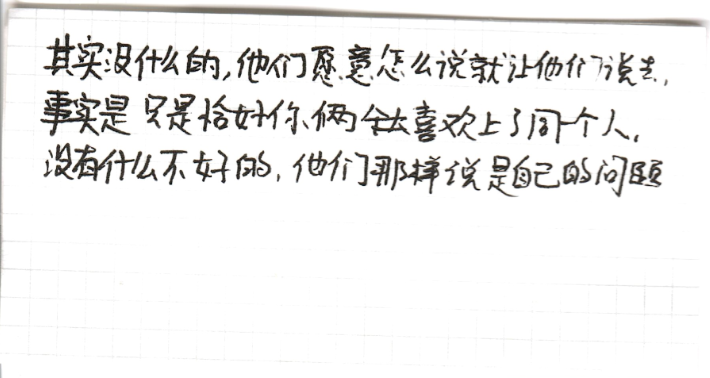 其实没什么的,他们愿意怎么说就让他们说去,
事实是只是恰好你俩都喜欢上了同一个人.
没有什么不好的,他们那样说是自己的问题